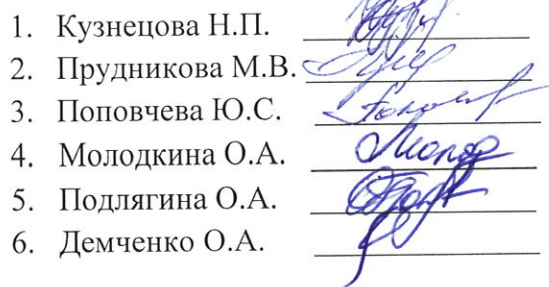 1. Кузнецова Н.П.
2. Прудникова М.В.
3. Поповчева Ю.С.
4. Молодкина О.А.
5. Подлягина О.А.
6. Демченко О.А.